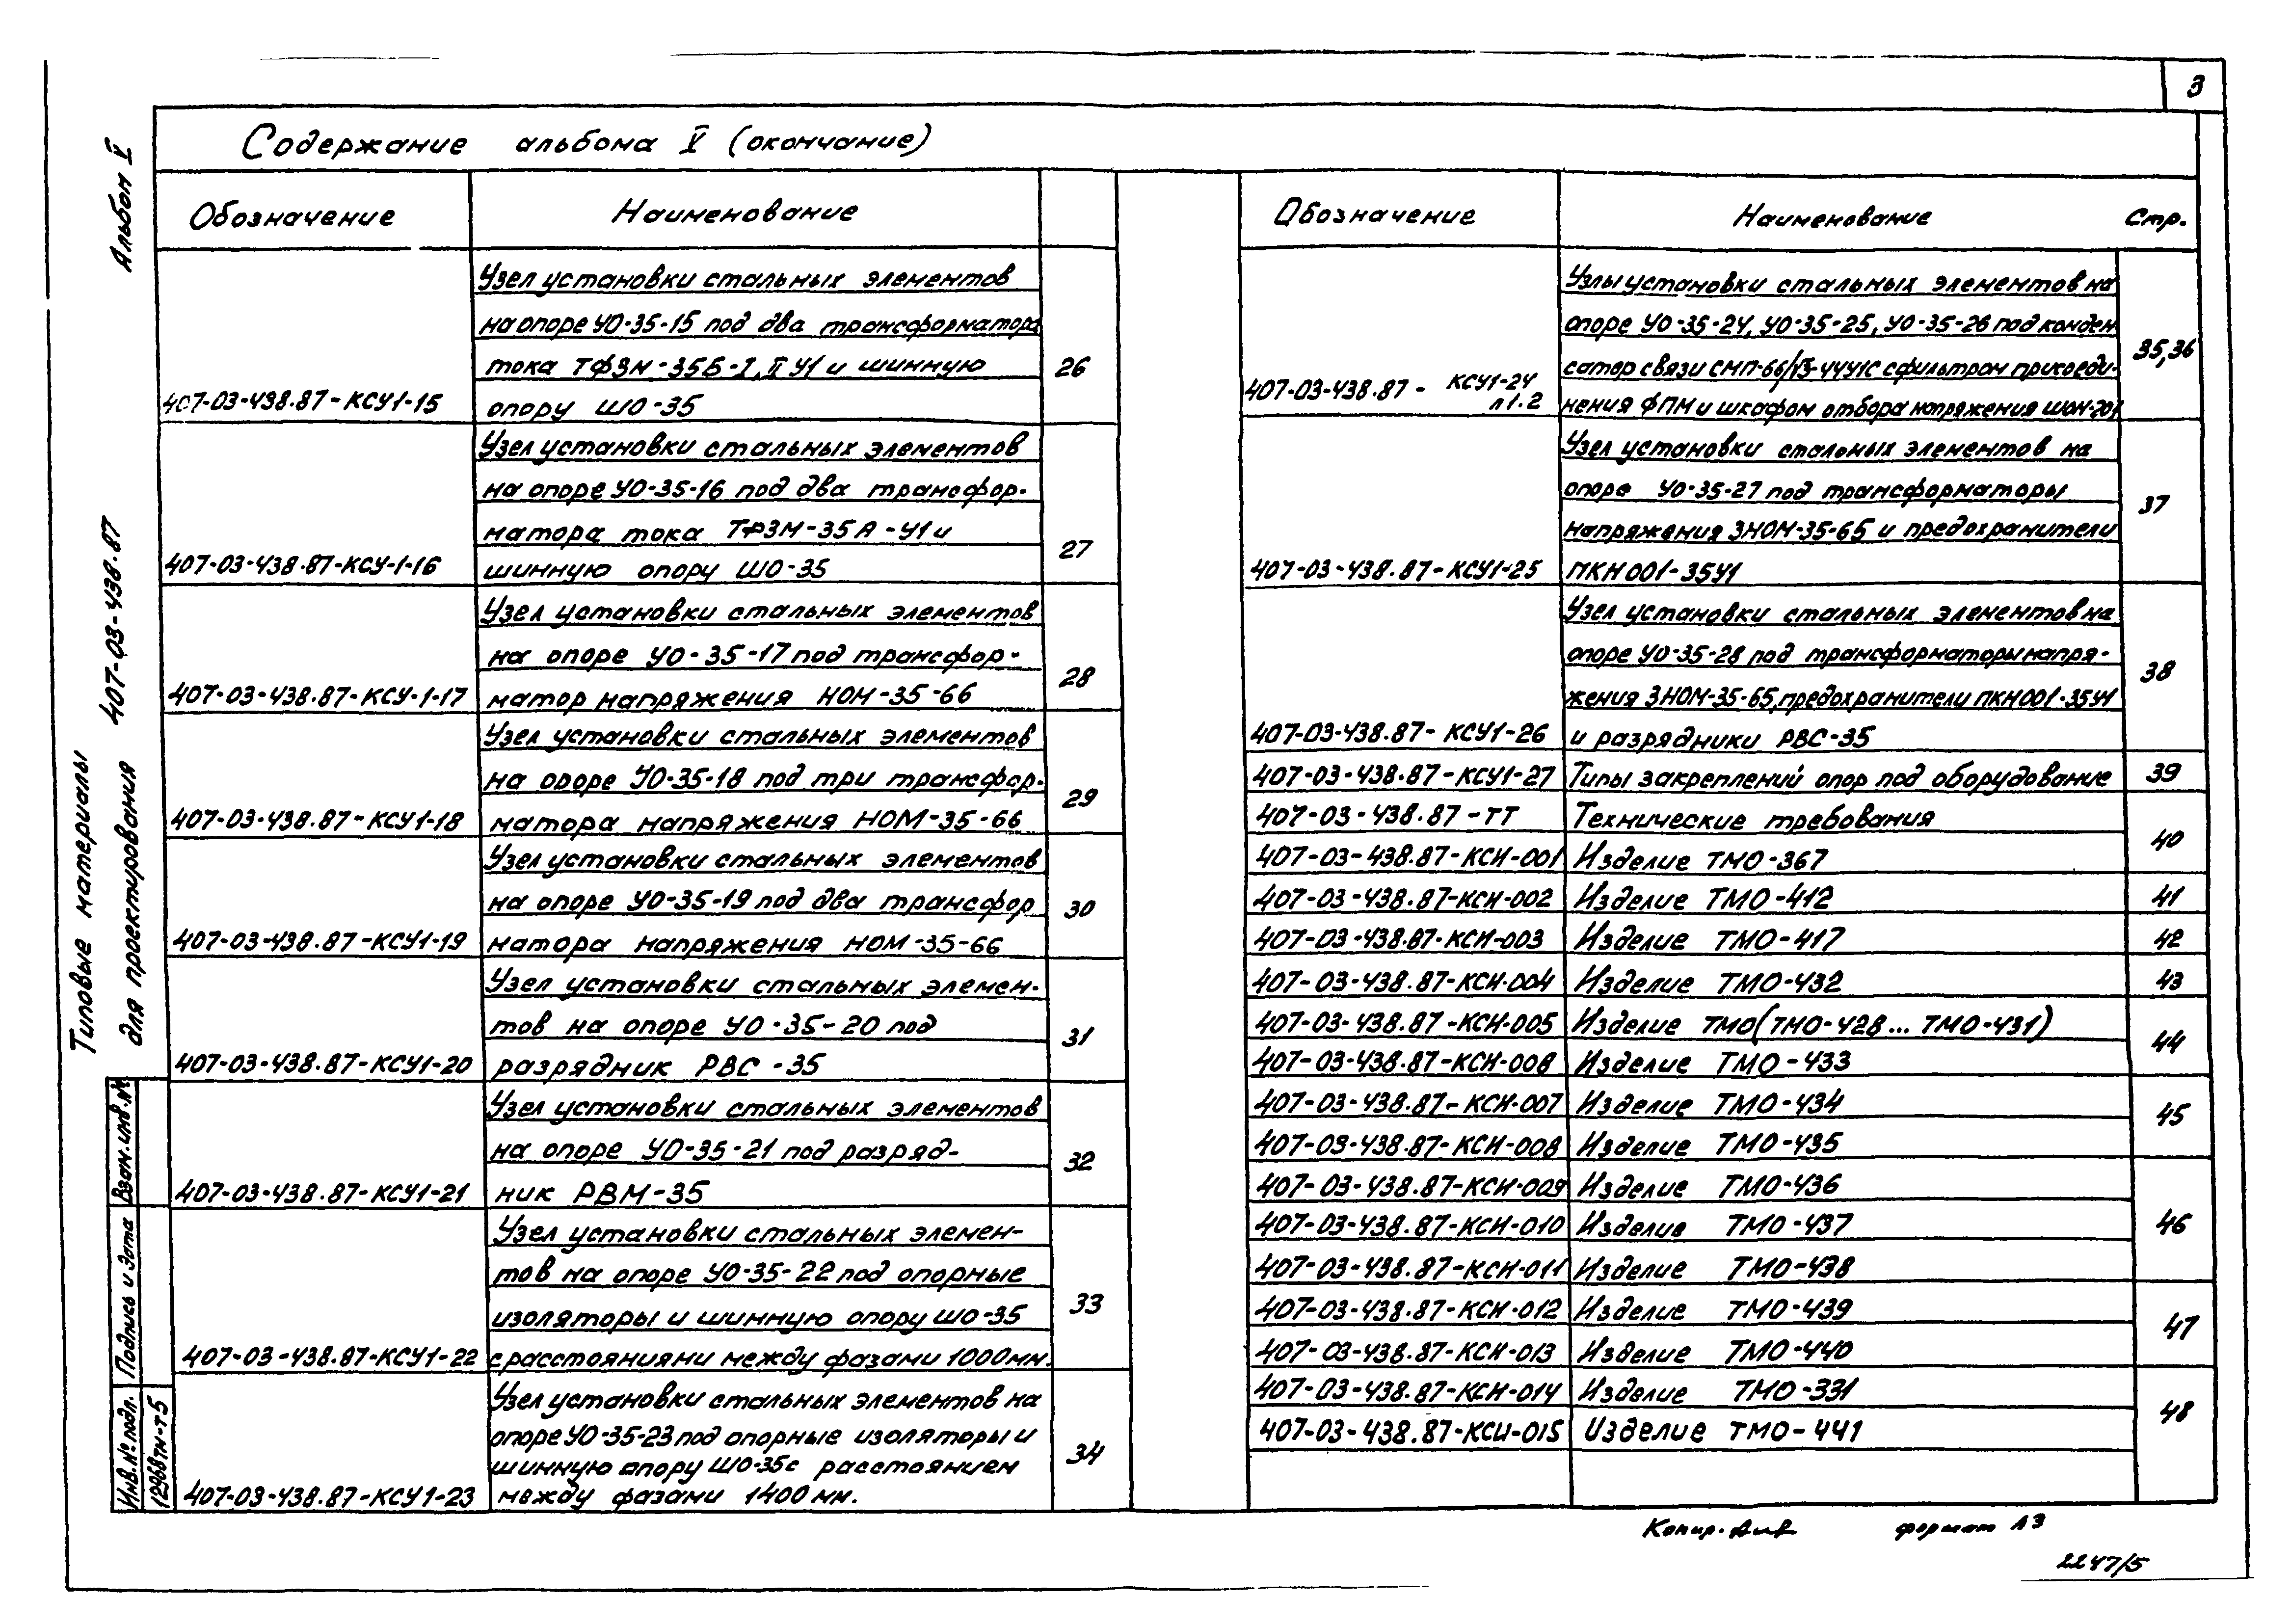 3
Содержание альбома V (окончание)
Обозначение Наименование
Узел установки стальных элементов
на опоре УО-35-15 под два трансформатора
тока ТФЗМ-35Б-I, II У1 и шинную
407-03-438.87-КСУ1-15 опору ШО-35 26
Узел установки стальных элементов
на опоре УО-35-16 под два трансфор-
матора тока ТФЗМ-35А-У1 и
407-03-438.87-КСУ-1-16 шинную опору ШО-35 27
Узел установки стальных элементов
на опоре УО-35-17 под трансфор-
407-03-438.87-КСУ-1-17 матор напряжения НОМ-35-66 28
Узел установки стальных элементов
на опоре УО-35-18 под три трансфор-
407-03-438.87-КСУ1-18 матора напряжения НОМ-35-66 29
Узел установки стальных элементов
на опоре УО-35-19 под два трансфор
407-03-438.87-КСУ1-19 матора напряжения НОМ-35-66 30
Узел установки стальных элемен-
тов на опоре УО-35-20 под
407-03-438.87-КСУ1-20 разрядник РВС-35 31
Узел установки стальных элементов
на опоре УО-35-21 под разряд-
407-03-438.87-КСУ1-21 ник РВМ-35 32
Узел установки стальных элемен-
тов на опоре УО-35-22 под опорные
изоляторы и шинную опору ШО-35
407-03-438.87-КСУ1-22 с расстояниями между фазами 1000мм. 33
Узел установки стальных элементов на
опоре УО-35-23 под опорные изоляторы и
шинную опору ШО-35 с расстоянием
407-03-438.87-КСУ1-23 между фазами 1400 мм. 34
Обозначение Наименование Стр.
Узлы установки стальных элементов на
опоре УО-35-24, УО-35-25, УО-35-26 под конден
сатор связи СМП-66/√3-4,4У1 с фильтром присоеди-
407-03-438.87- КСУ1-24 л1.2 нения ФПМ и шкафом отбора напряжения ШОН-201 35,36
Узел установки стальных элементов на
опоре УО-35-27 под трансформаторы
напряжения ЗНОМ-35-65 и предохранители
407-03-438.87-КСУ1-25 ПКН001-35У1 37
Узел установки стальных элементов на
опоре УО-35-28 под трансформаторы напря-
жения ЗНОМ-35-65, предохранители ПКН001-35У1
407-03-438.87-КСУ1-26 и разрядники РВС-35 38
407-03-438.87-КСУ1-27 Типы закреплений опор под оборудование 39
407-03-438.87-ТТ Технические требования
407-03-438.87-КСИ-001 Изделие ТМО-367 40
407-03-438.87-КСИ-002 Изделие ТМО-412 41
407-03-438.87-КСИ-003 Изделие ТМО-417 42
407-03-438.87-КСИ-004 Изделие ТМО-432 43
407-03-438.87-КСИ-005 Изделие ТМО(ТМО-428...ТМО-431)
407-03-438.87-КСИ-006 Изделие ТМО-433 44
407-03-438.87-КСИ-007 Изделие ТМО-434
407-03-438.87-КСИ-008 Изделие ТМО-435 45
407-03-438.87-КСИ-009 Изделие ТМО-436
407-03-438.87-КСИ-010 Изделие ТМО-437 46
407-03-438.87-КСИ-011 Изделие ТМО-438
407-03-438.87-КСИ-012 Изделие ТМО-439
407-03-438.87-КСИ-013 Изделие ТМО-440 47
407-03-438.87-КСИ-014 Изделие ТМО-331
407-03-438.87-КСИ-015 Изделие ТМО-441 48
Альбом V
Типовые материалы
для проектирования 407-03-438.87
Взам.инв.№
Подпись и дата
Инв.№ подл.
12968тм-т5
Копир. формат А3
2247/5